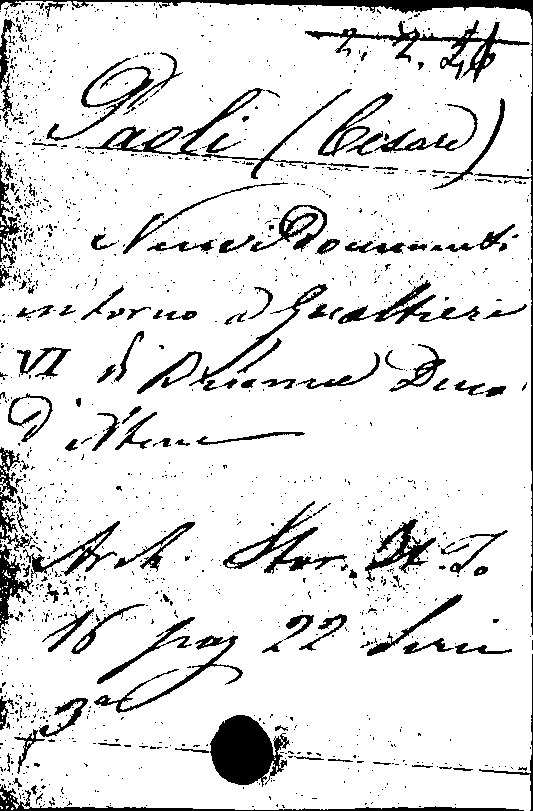 2. 2. 26
Paoli (Cesare)
Nuovi Documenti
intorno a Gualtieri
VI di Brienne Duca
D'Atene
Arch. Stor. It. To
16 pag 22 Serie
3ª